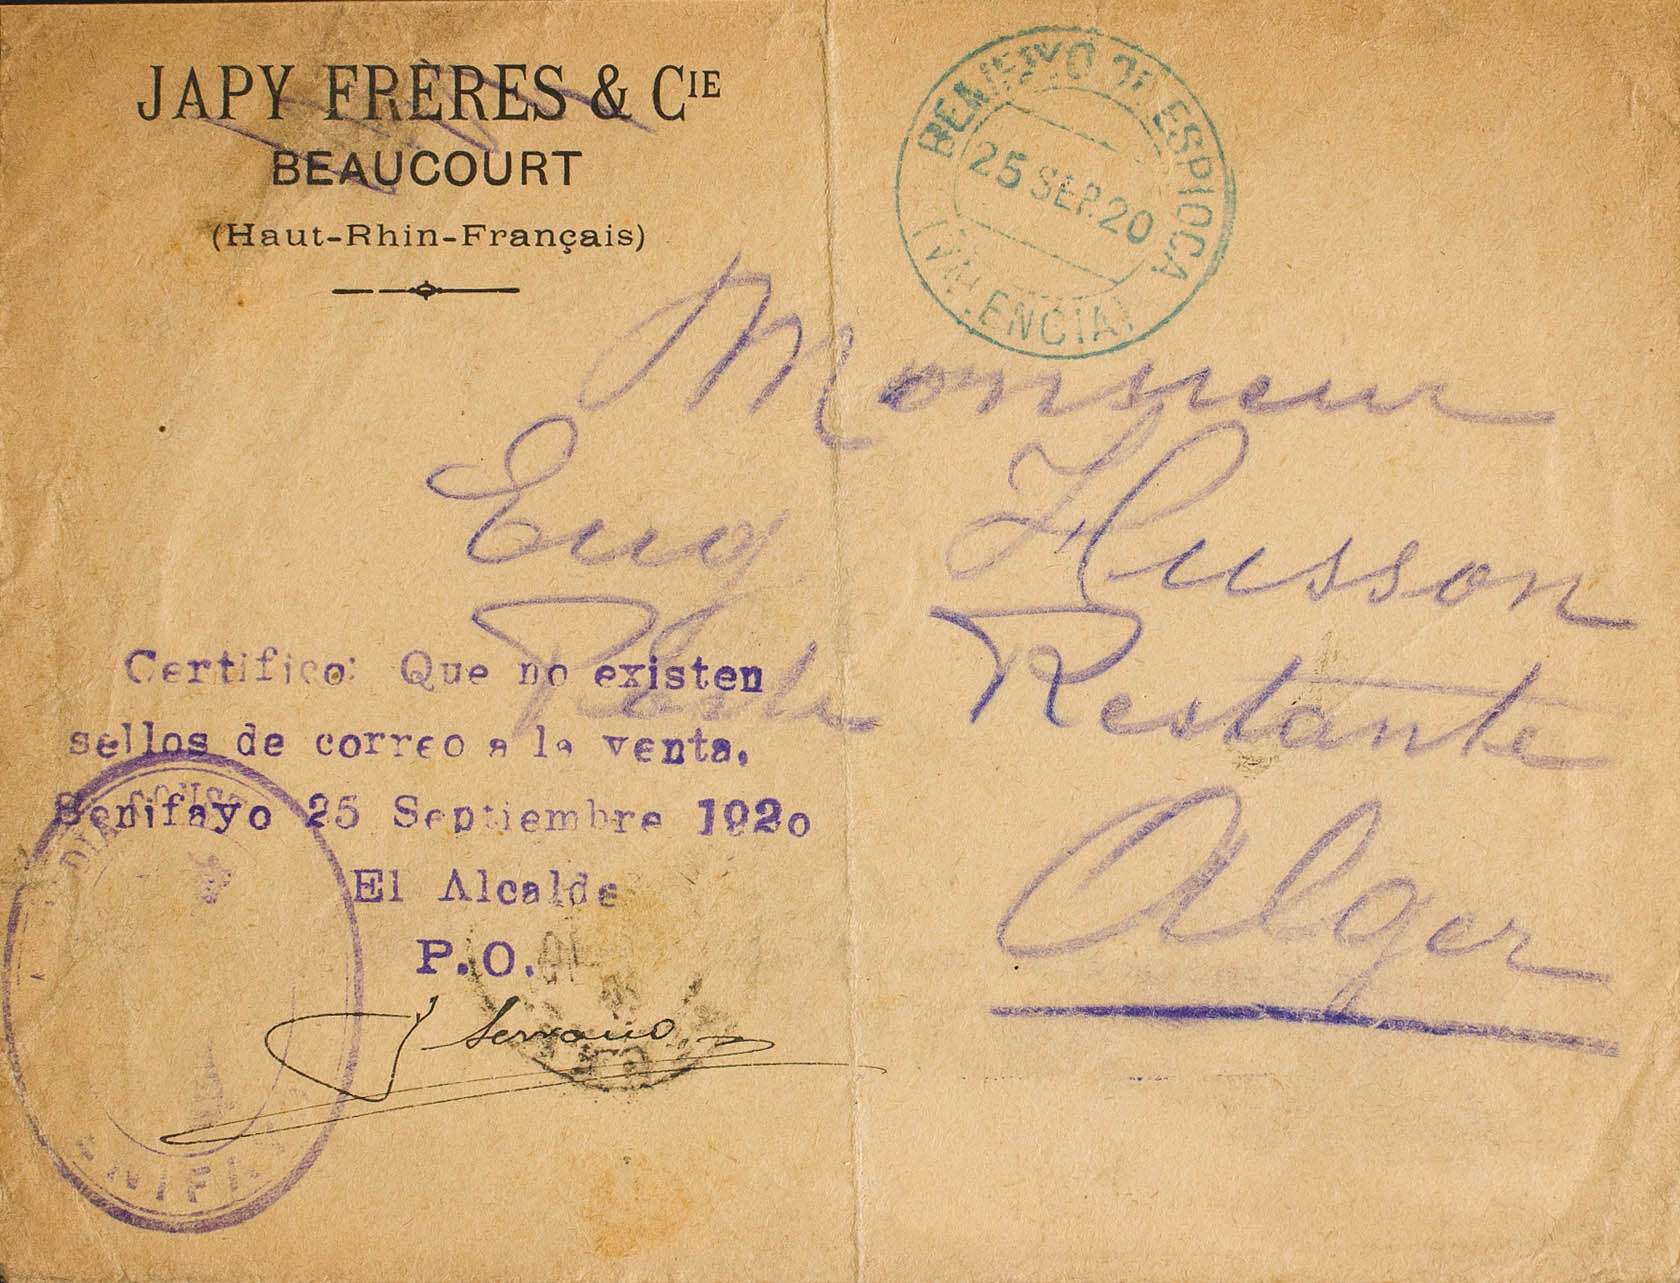 JAPY FRÈRES & CIE
BEAUCOURT
(Haut-Rhin-Français)
BENIFAYO DE ESPIOCA
25 SEP.20
(VALENCIA)
Monsieur
Eug Husson
Poste Restante
Alger
Certifico: Que no existen
sellos de correo a la venta.
Benifayo 25 Septiembre 1920
El Alcalde
P.O.
Serrano